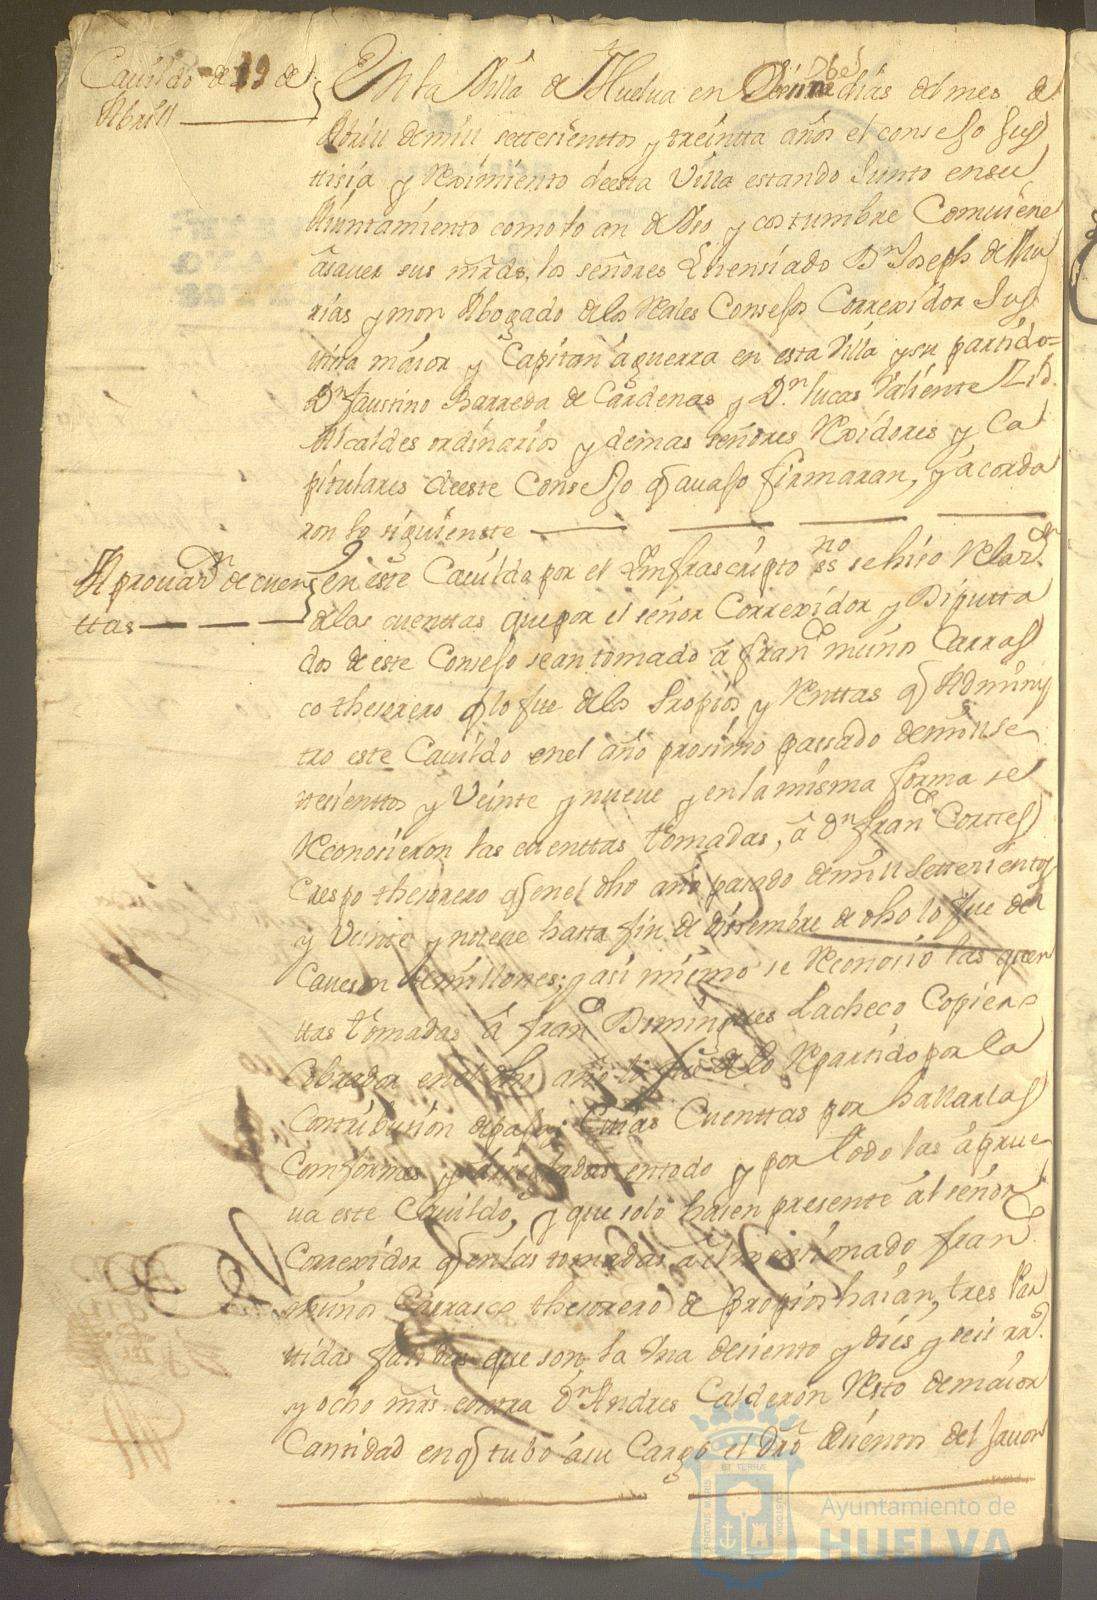 Cavildo de 19 de
Abrill
En la Villa de Huelva en dias del mes de
Abrill de mill settecienttos y treintta años el consejo Jus
ttisia y Reximiento de esta Villa estando Junto en su
Aiuntamiento como lo an de Vso y costumbre Comviene
asaver sus mrds, los señores Lisensiado Dn Joseph de
rias y mon Abogado de los Reales Consejos Correxidor Jus
titia maior y Capitan a guerra en esta Villa y su partido=
Dn faustino Barreda de Cardenas y Dn lucas Valiente
Alcaldes ordinarios y demas señores Rexidores y Ca
pitulares de este Consejo q avajo firmaran, y acorda
ron lo siguiente
Aprouaon de cuen
ttas
en este Cavildo por el Infrascripto ssno se hiso Relaon
de las cuenttas que por el señor Correxidor y Diputta
dos de este Consejo se an tomado á franco muños Carras
co thesorero q lo fue de los Propios y Renttas q Adminis
tro este Cavildo en el año prosimo passado de mill se
ttesienttos y Veinte y nueve y en la misma forma se
Reconosieron las cuenttas tomadas, á Dn franco Corttes
Crespo thesorero q en el dho año pasado de mill settesientos
y Veinte y nueve hasta fin de disiembre de dho lo fue del
Caveson de millones; y asi mismo se Reconosio las quen
ttas tomadas á franco Domingues Pacheco
Cobrador en el dho año de lo Repartido por la
Contribusion de paja; Cuias Cuenttas por hallarlas
Comformes y arregladas en todo y por todo las aprue
va este Cavildo, y que solo hasen presente al señor
Correxidor q en las tomadas a el mensionado franco
muños Carrasco thesorero de propios haian, tres Par
tidas fallidas que son la Vna de siento y dies y seis rrs
y ocho mrs contra Dn Andres Calderon Resto de maior
Cantidad en q tubo á su Cargo el Dro del Javon
PORTUS MARIS
ET TERRÆ
CUSTODIA
Ayuntamiento de
HUELVA